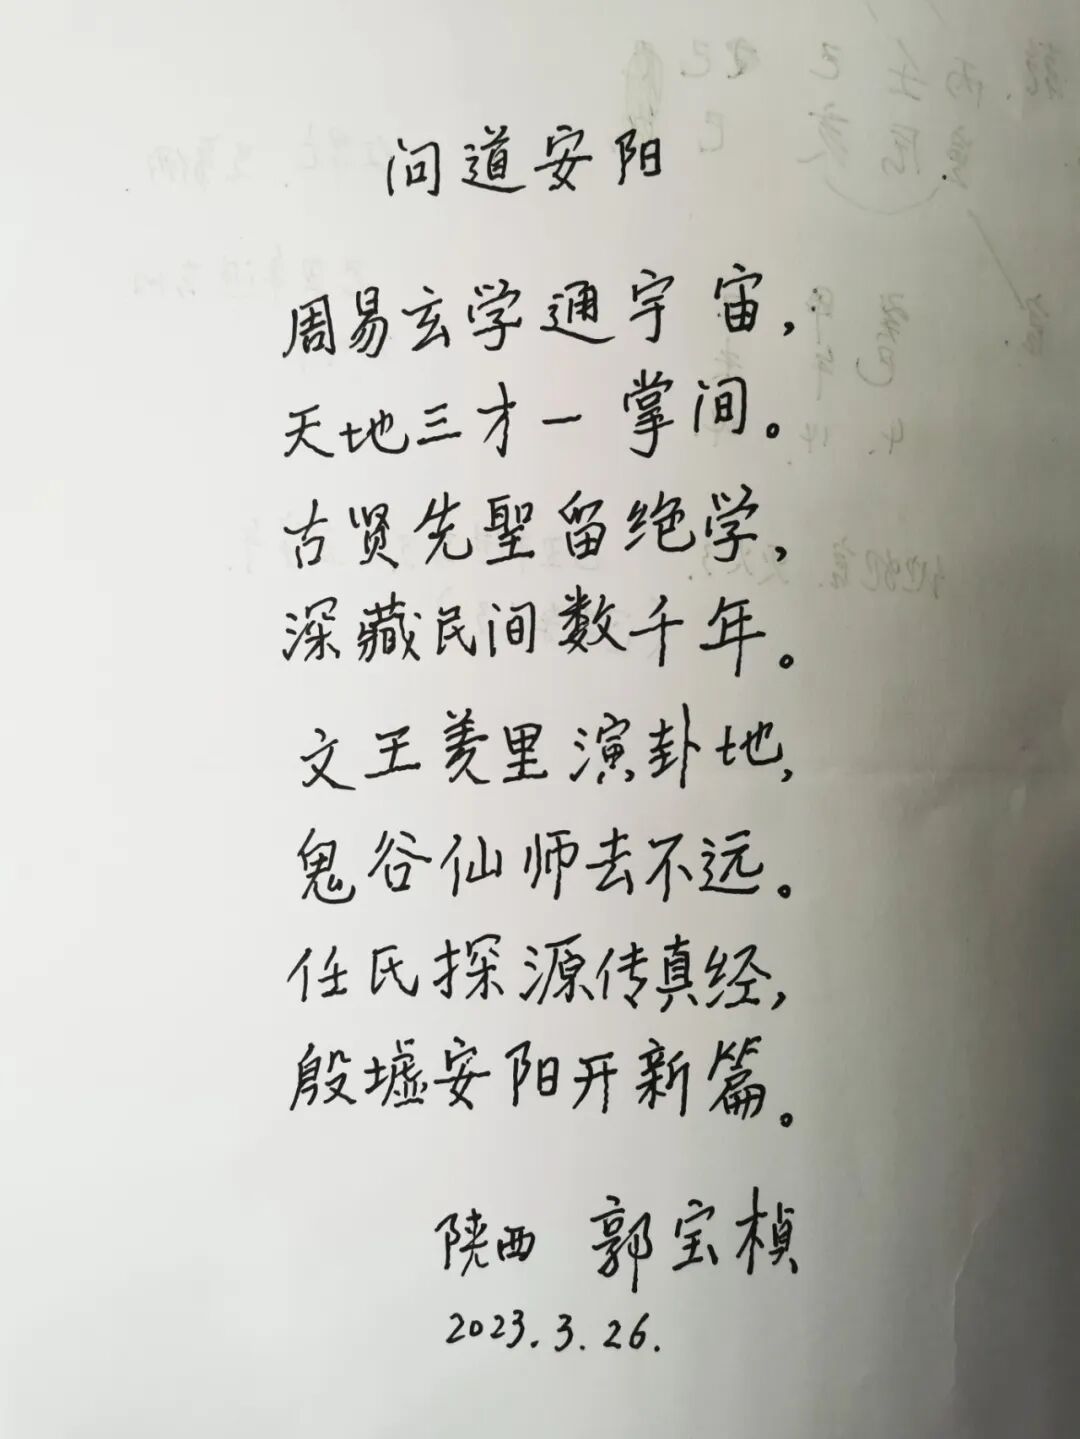 问道安阳
周易玄学通宇宙，
天地三才一掌间。
古贤先聖留绝学，
深藏民间数千年。
文王羑里演卦地，
鬼谷仙师去不远。
任氏探源传真经，
殷墟安阳开新篇。
陕西 郭宝桢
2023.3.26.